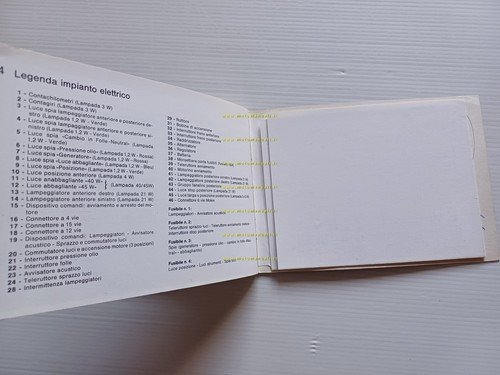 4 Legenda impianto elettrico
1 - Contachilometri (Lampada 3 W)
2 - Contagiri (Lampada 3 W)
3 - Luce spia lampeggiatore anteriore e posteriore destro (Lampada 1,2 W - Verde)
4 - Luce spia lampeggiatore anteriore e posteriore sinistro (Lampada 1,2 W - Verde)
5 - Luce spia «Cambio in Folle-Neutral» (Lampada 1,2 W - Verde)
6 - Luce spia «Pressione olio» (Lampada 1,2 W - Rossa)
7 - Luce spia «Generatore» (Lampada 1,2 W - Rossa)
8 - Luce spia «Luce abbagliante» (Lampada 1,2 W - Bleu)
9 - Luce spia «Posizione» (Lampada 1,2 W - Verde)
10 - Luce posizione anteriore (Lampada 4 W)
11 - Luce anabbagliante «40 W»
12 - Luce abbagliante «45 W» } (Lampada 40/45W)
13 - Lampeggiatore anteriore destro (Lampada 21 W)
14 - Lampeggiatore anteriore sinistro (Lampada 21 W)
15 - Dispositivo comandi: avviamento e arresto del motore
16 - Connettore a 4 vie
17 - Connettore a 15 vie
18 - Connettore a 12 vie
19 - Dispositivo comando: Lampeggiatori - Avvisatore acustico - Sprazzo e commutatore luci
20 - Commutatore luci e accensione motore (3 posizioni)
21 - Interruttore pressione olio
22 - Interruttore folle
23 - Avvisatore acustico
24 - Teleruttore sprazzo luci
28 - Intermittenza lampeggiatori
29 - Ruttore
31 - Bobine di accensione
32 - Interruttore freno anteriore
33 - Interruttore freno posteriore
34 - Raddrizzatore
35 - Alternatore
36 - Regolatore
37 - Batteria
38 - Morsettiera porta fusibili
39 - Teleruttore avviamento
40 - Motorino avviamento
41 - Lampeggiatore posteriore sinistro
42 - Lampeggiatore posteriore destro
43 - Gruppo fanalino posteriore
44 - Luce stop posteriore
45 - Luce targa e posizione posteriore
46 - Connettore 6 vie Molex
Fusibile n. 1:
Lampeggiatori - Avvisatore acustico
Fusibile n. 2:
Teleruttore sprazzo luci - Teleruttore avviamento motore
Interruttore stop posteriore
Fusibile n. 3:
Spie (generatore - pressione olio - cambio in folle «Neutral» - abbagliante)
Fusibile n. 4:
Luce posizione - Luci strumenti - Spie luci